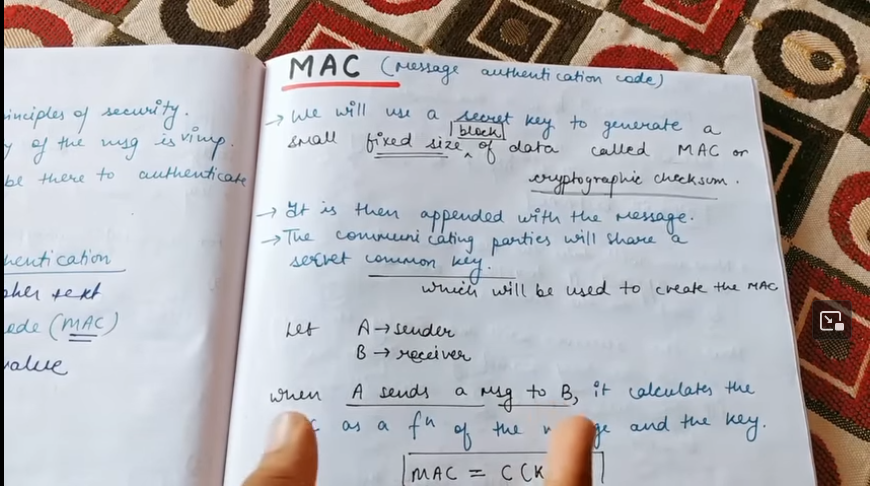 inciples of security.
y of the msg is vimp.
be there to authenticate
hentication
pher text
ode (MAC)
value
MAC (Message authentication code)
→ We will use a secret key to generate a
small fixed size block of data called MAC or
cryptographic checksum.
→ It is then appended with the message.
→ The communicating parties will share a
secret common key.
which will be used to create the MAC
Let A → sender
B → receiver
when A sends a msg to B, it calculates the
C as a fn of the m ge and the key.
MAC = C(K